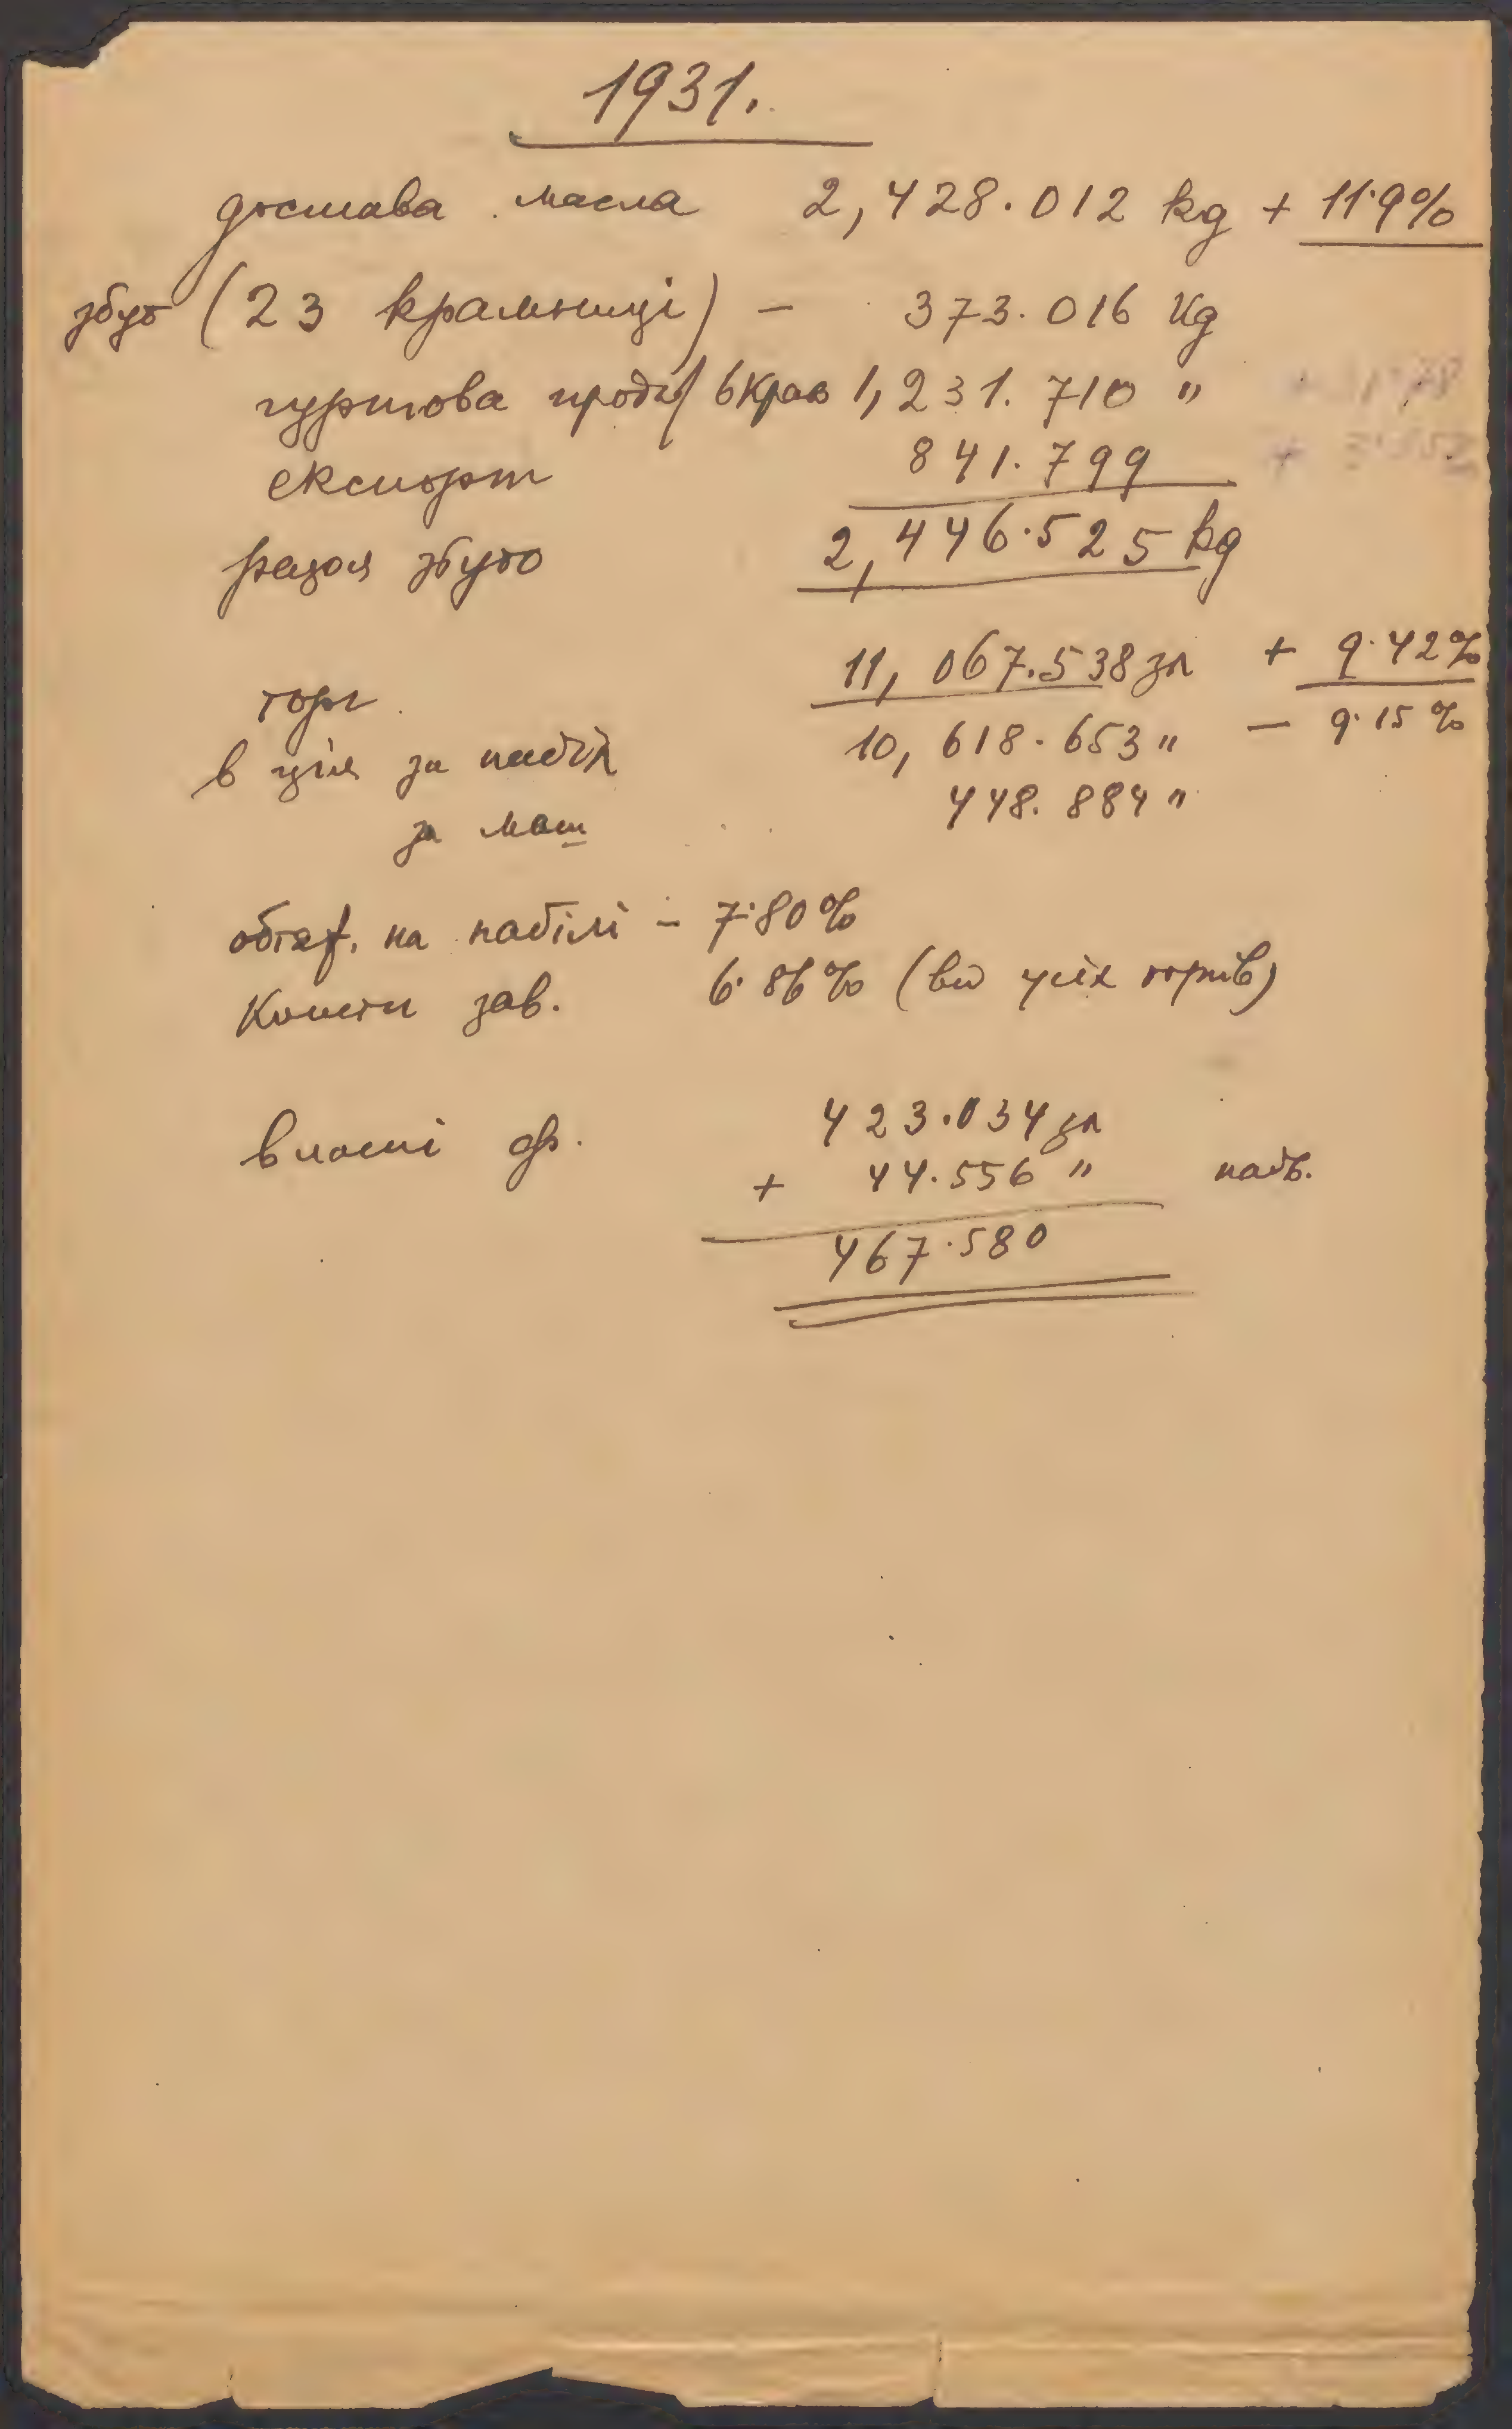 1931.
достава масла 2,428.012 kg + 11.9%
збут (23 крамниці) - 373.016 Kg
гуртова прод. / в краю 1,231.710 "
експорт 841.799
разом збуто 2,446.525 kg
торг 11,067.538 зл + 9.42%
в цім за набіл 10,618.653 " - 9.15%
за маш 448.884 "
обтяж. на набілі - 7.80%
Кошти зав. 6.86% (від усіх торгів)
власні ф. 423.034 зл
+ 44.556 " надв.
467.580